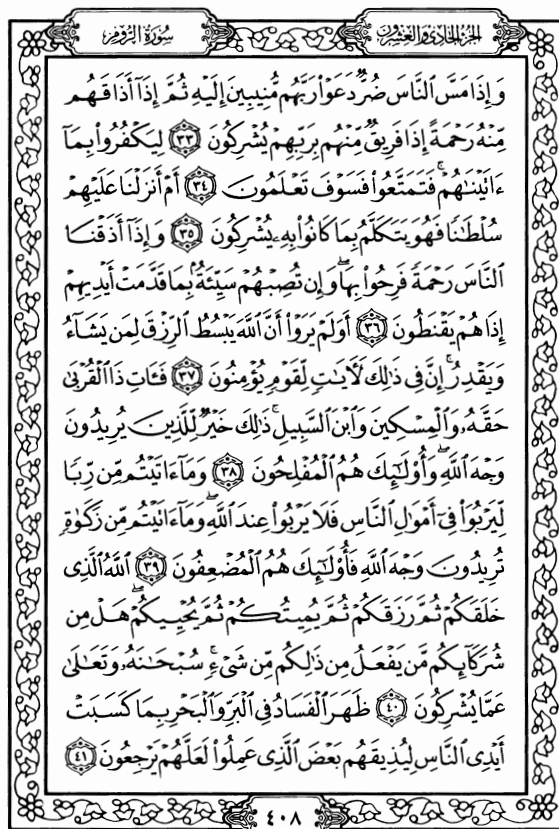 سُورَةُ الرُّومِ
الجُزْءُ الحَادِي وَالعِشْرُونَ
وَإِذَا مَسَّ ٱلنَّاسَ ضُرٌّ دَعَوْا۟ رَبَّهُم مُّنِيبِينَ إِلَيْهِ ثُمَّ إِذَآ أَذَاقَهُم
مِّنْهُ رَحْمَةً إِذَا فَرِيقٌ مِّنْهُم بِرَبِّهِمْ يُشْرِكُونَ ٣٣ لِيَكْفُرُوا۟ بِمَآ
ءَاتَيْنَٰهُمْ ۚ فَتَمَتَّعُوا۟ فَسَوْفَ تَعْلَمُونَ ٣٤ أَمْ أَنزَلْنَا عَلَيْهِمْ
سُلْطَٰنًا فَهُوَ يَتَكَلَّمُ بِمَا كَانُوا۟ بِهِۦ يُشْرِكُونَ ٣٥ وَإِذَآ أَذَقْنَا
ٱلنَّاسَ رَحْمَةً فَرِحُوا۟ بِهَا ۖ وَإِن تُصِبْهُمْ سَيِّئَةٌۢ بِمَا قَدَّمَتْ أَيْدِيهِمْ
إِذَا هُمْ يَقْنَطُونَ ٣٦ أَوَلَمْ يَرَوْا۟ أَنَّ ٱللَّهَ يَبْسُطُ ٱلرِّزْقَ لِمَن يَشَآءُ
وَيَقْدِرُ ۚ إِنَّ فِى ذَٰلِكَ لَـَٔايَٰتٍ لِّقَوْمٍ يُؤْمِنُونَ ٣٧ فَـَٔاتِ ذَا ٱلْقُرْبَىٰ
حَقَّهُۥ وَٱلْمِسْكِينَ وَٱبْنَ ٱلسَّبِيلِ ۚ ذَٰلِكَ خَيْرٌ لِّلَّذِينَ يُرِيدُونَ
وَجْهَ ٱللَّهِ ۖ وَأُو۟لَٰٓئِكَ هُمُ ٱلْمُفْلِحُونَ ٣٨ وَمَآ ءَاتَيْتُم مِّن رِّبًا
لِّيَرْبُوَا۟ فِىٓ أَمْوَٰلِ ٱلنَّاسِ فَلَا يَرْبُوا۟ عِندَ ٱللَّهِ ۖ وَمَآ ءَاتَيْتُم مِّن زَكَوٰةٍ
تُرِيدُونَ وَجْهَ ٱللَّهِ فَأُو۟لَٰٓئِكَ هُمُ ٱلْمُضْعِفُونَ ٣٩ ٱللَّهُ ٱلَّذِى
خَلَقَكُمْ ثُمَّ رَزَقَكُمْ ثُمَّ يُمِيتُكُمْ ثُمَّ يُحْيِيكُمْ ۖ هَلْ مِن
شُرَكَآئِكُم مَّن يَفْعَلُ مِن ذَٰلِكُم مِّن شَىْءٍ ۚ سُبْحَٰنَهُۥ وَتَعَٰلَىٰ
عَمَّا يُشْرِكُونَ ٤٠ ظَهَرَ ٱلْفَسَادُ فِى ٱلْبَرِّ وَٱلْبَحْرِ بِمَا كَسَبَتْ
أَيْدِى ٱلنَّاسِ لِيُذِيقَهُم بَعْضَ ٱلَّذِى عَمِلُوا۟ لَعَلَّهُمْ يَرْجِعُونَ ٤١
٤٠٨